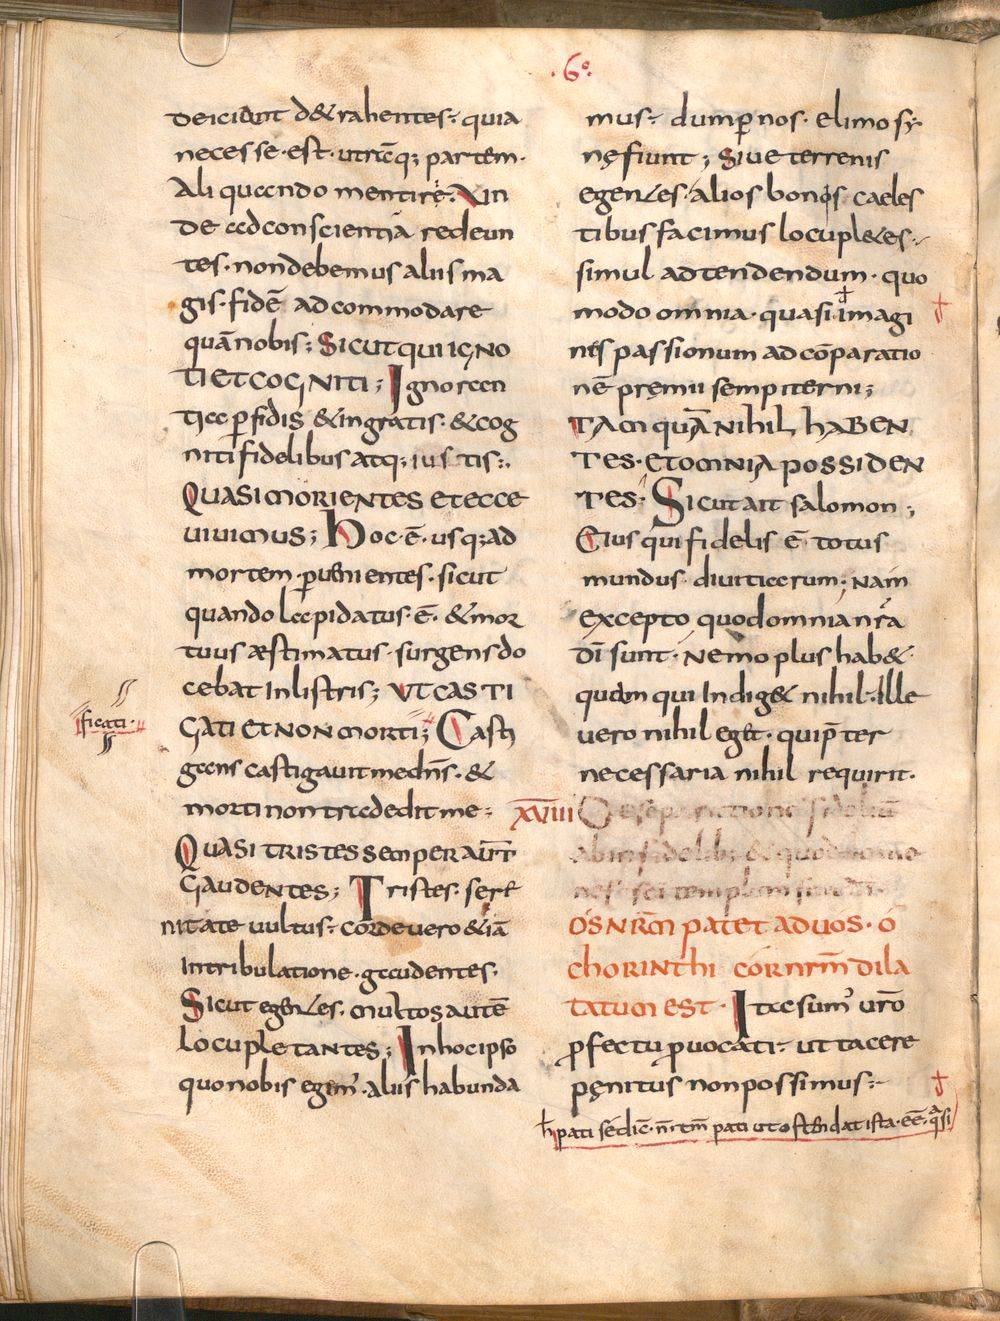 .6o.
deiciunt d&rahentes; quia
necesse·est·utrēq; partem·
Aliquando mentire; Vin
de ad conscientiā redeun
tes·non debemus aliis ma
gis·fidē adcommodare
quā nobis; Sicut qui igno
ti et cogniti; Ignoran
tia perfidis &ingratis·&cog
niti fidelibus atq; iustis;
Quasi morientes et ecce
uiuimus; Hoc·ē·usq;ad
mortem·puenientes·sicut
quando lapidatus·ē·&mor
tuus æstimatus·surgens do
cebat In listris; Ut casti
gati et non morti; Casti
ficati·
gans castigauit me dn̄s·&
morti non tradedit me;
Quasi tristes semper aut̄
Gaudentes; Tristes·ser
nitate uultus; corde uero &iā
Intribulatione·gaudentes·
Sicut egentes·multos autē
locupletantes; In hoc ipso
quo nobis egem᾽·aliis habunda
mus; dum p nos·elimosy
nę fiunt; Siue terrenis
egentes·alios bonis caeles
tibus facimus locupletes·
simul adtendendum·quo
modo omnia·quasi·imagi
nes passionum ad cōparatio
nē pręmii sempiterni;
Tam quā nihil haben
tes·et omnia possiden
tes· Sicut ait salomon;
Eius qui fidelis ē totus
mundus diuitiarum; Nam
excepto quod omnia nr̄a
dī sunt·Nemo plus hab&
quam qui Indig& nihil·Ille
uero nihil eget·quip̄ter
necessaria nihil requirit·
XVIIII De separatione fideliū
ab infidelib; & quod
sci templum dī·
Os nr̄m patet ad uos·o
chorinthi cor nrm̄ dila
tatum est· Ita sum᾽ urō
pfectu puocati·ut tacere
pęnitus non possimus;
h pati se dic̄·nr̄tm̄ pati ut ostendat ista·ēē·qasi